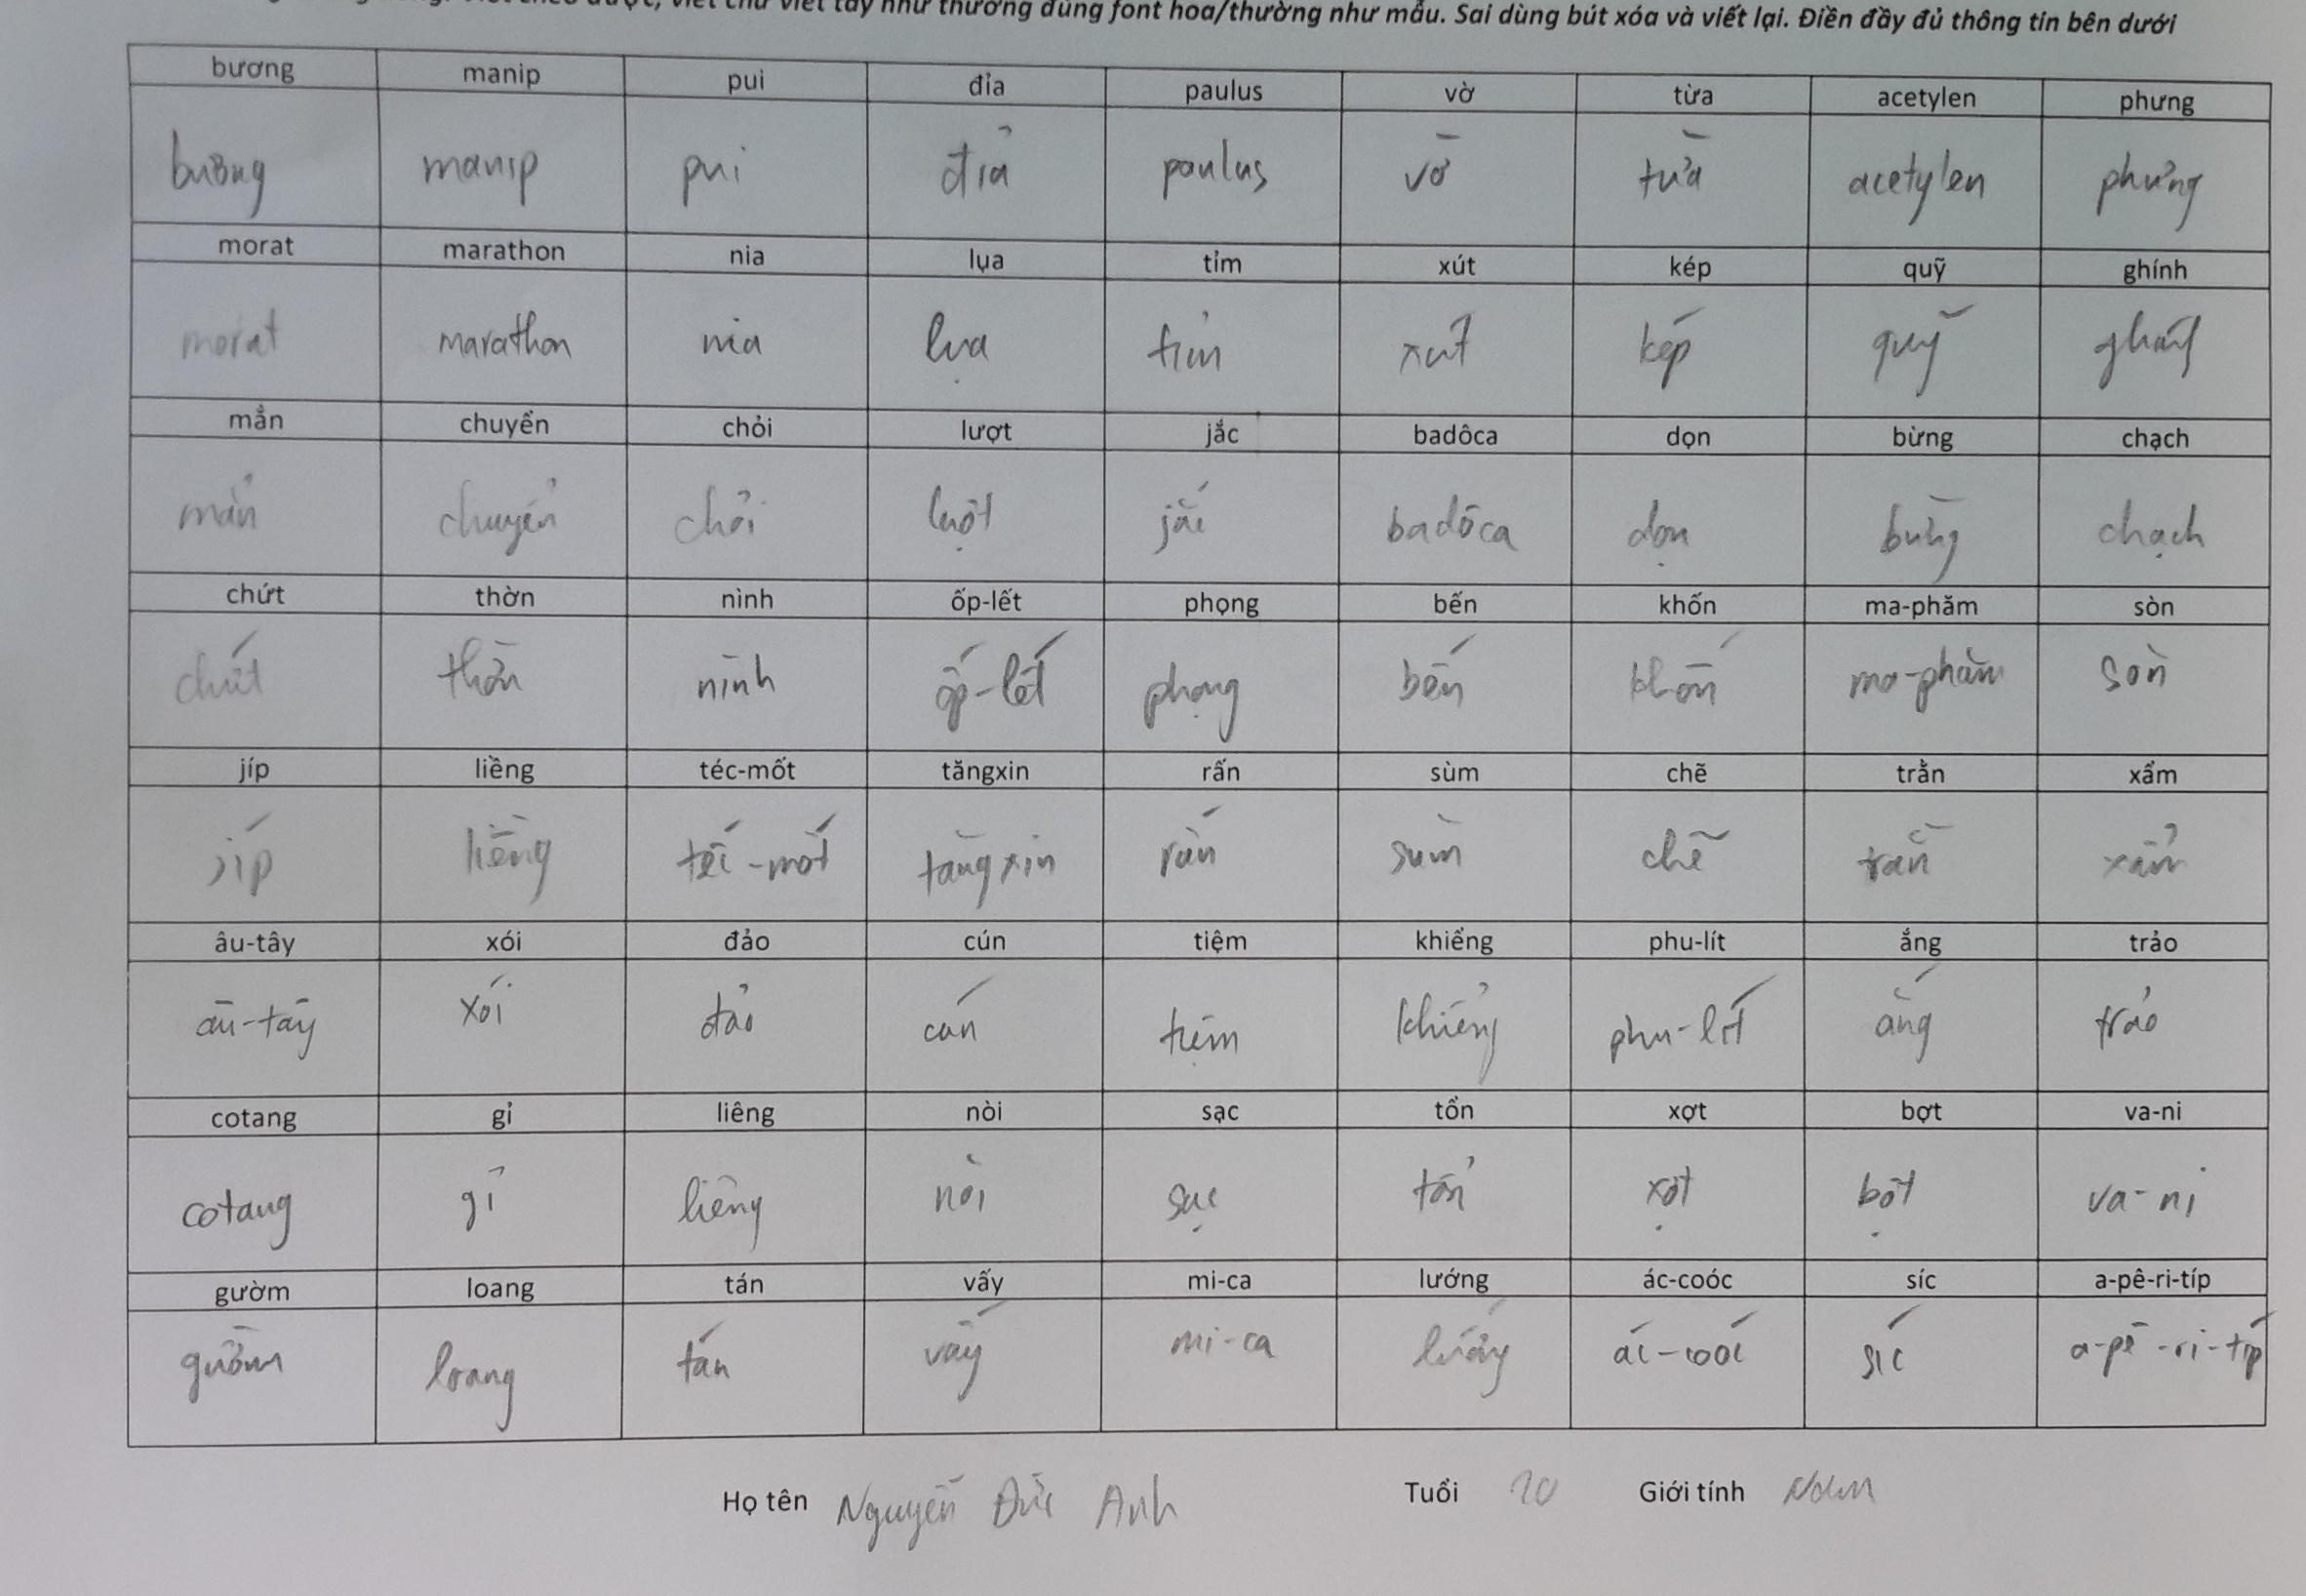 viết chữ viết tay như thường dùng font hoa/thường như mẫu. Sai dùng bút xóa và viết lại. Điền đầy đủ thông tin bên dưới
bương manip pui đỉa paulus vờ từa acetylen phưng
bương manip pui đỉa paulus vờ từa acetylen phưng
morat marathon nia lụa tỉm xút kép quỹ ghính
morat marathon nia lụa tỉm xút kép quỹ ghính
mẳn chuyển chỏi lượt jắc badôca dọn bừng chạch
mẳn chuyển chỏi lượt jắc badôca dọn bừng chạch
chứt thờn nình ốp-lết phọng bến khốn ma-phăm sòn
chứt thờn nình ốp-lết phọng bến khốn ma-phăm sòn
jíp liềng téc-mốt tăngxin rấn sùm chẽ trằn xẩm
jíp liềng téc-mốt tăngxin rấn sùm chẽ trằn xẩm
âu-tây xói đảo cún tiệm khiểng phu-lít ắng trảo
âu-tây xói đảo cún tiệm khiểng phu-lít ắng trảo
cotang gỉ liêng nòi sạc tổn xợt bợt va-ni
cotang gỉ liêng nòi sạc tổn xợt bợt va-ni
gườm loang tán vấy mi-ca lướng ác-coóc síc a-pê-ri-típ
gườm loang tán vấy mi-ca lướng ác-coóc síc a-pê-ri-típ
Họ tên Nguyễn Đức Anh Tuổi 20 Giới tính Nam